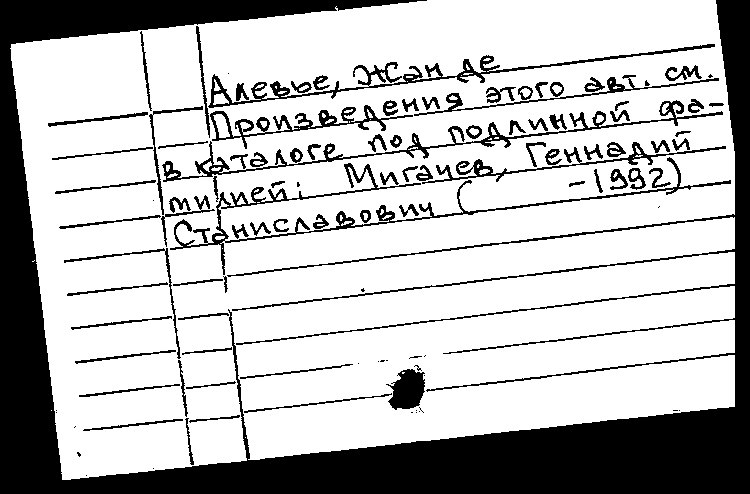 Алевье, Жан де
Произведения этого авт. см.
в каталоге под подлинной фа-
милией: Мигачев, Геннадий
Станиславович ( -1992).